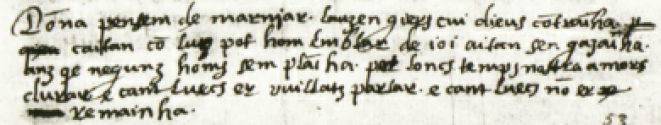 Dōna pensem de marniar. lauzen giers cui dieus cōtraiha.
caitan cō lueg pot hom emblar de ioi aitan sen gazaiha.
anz qe negunz homs sem plaiha. pot loncs temps nostra amors
durar e cant luecs er vuillatz parlar. e cant luecs nō er
remainha.
53